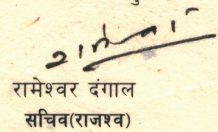 रामेश्वर दंगाल
सचिव(राजश्व)